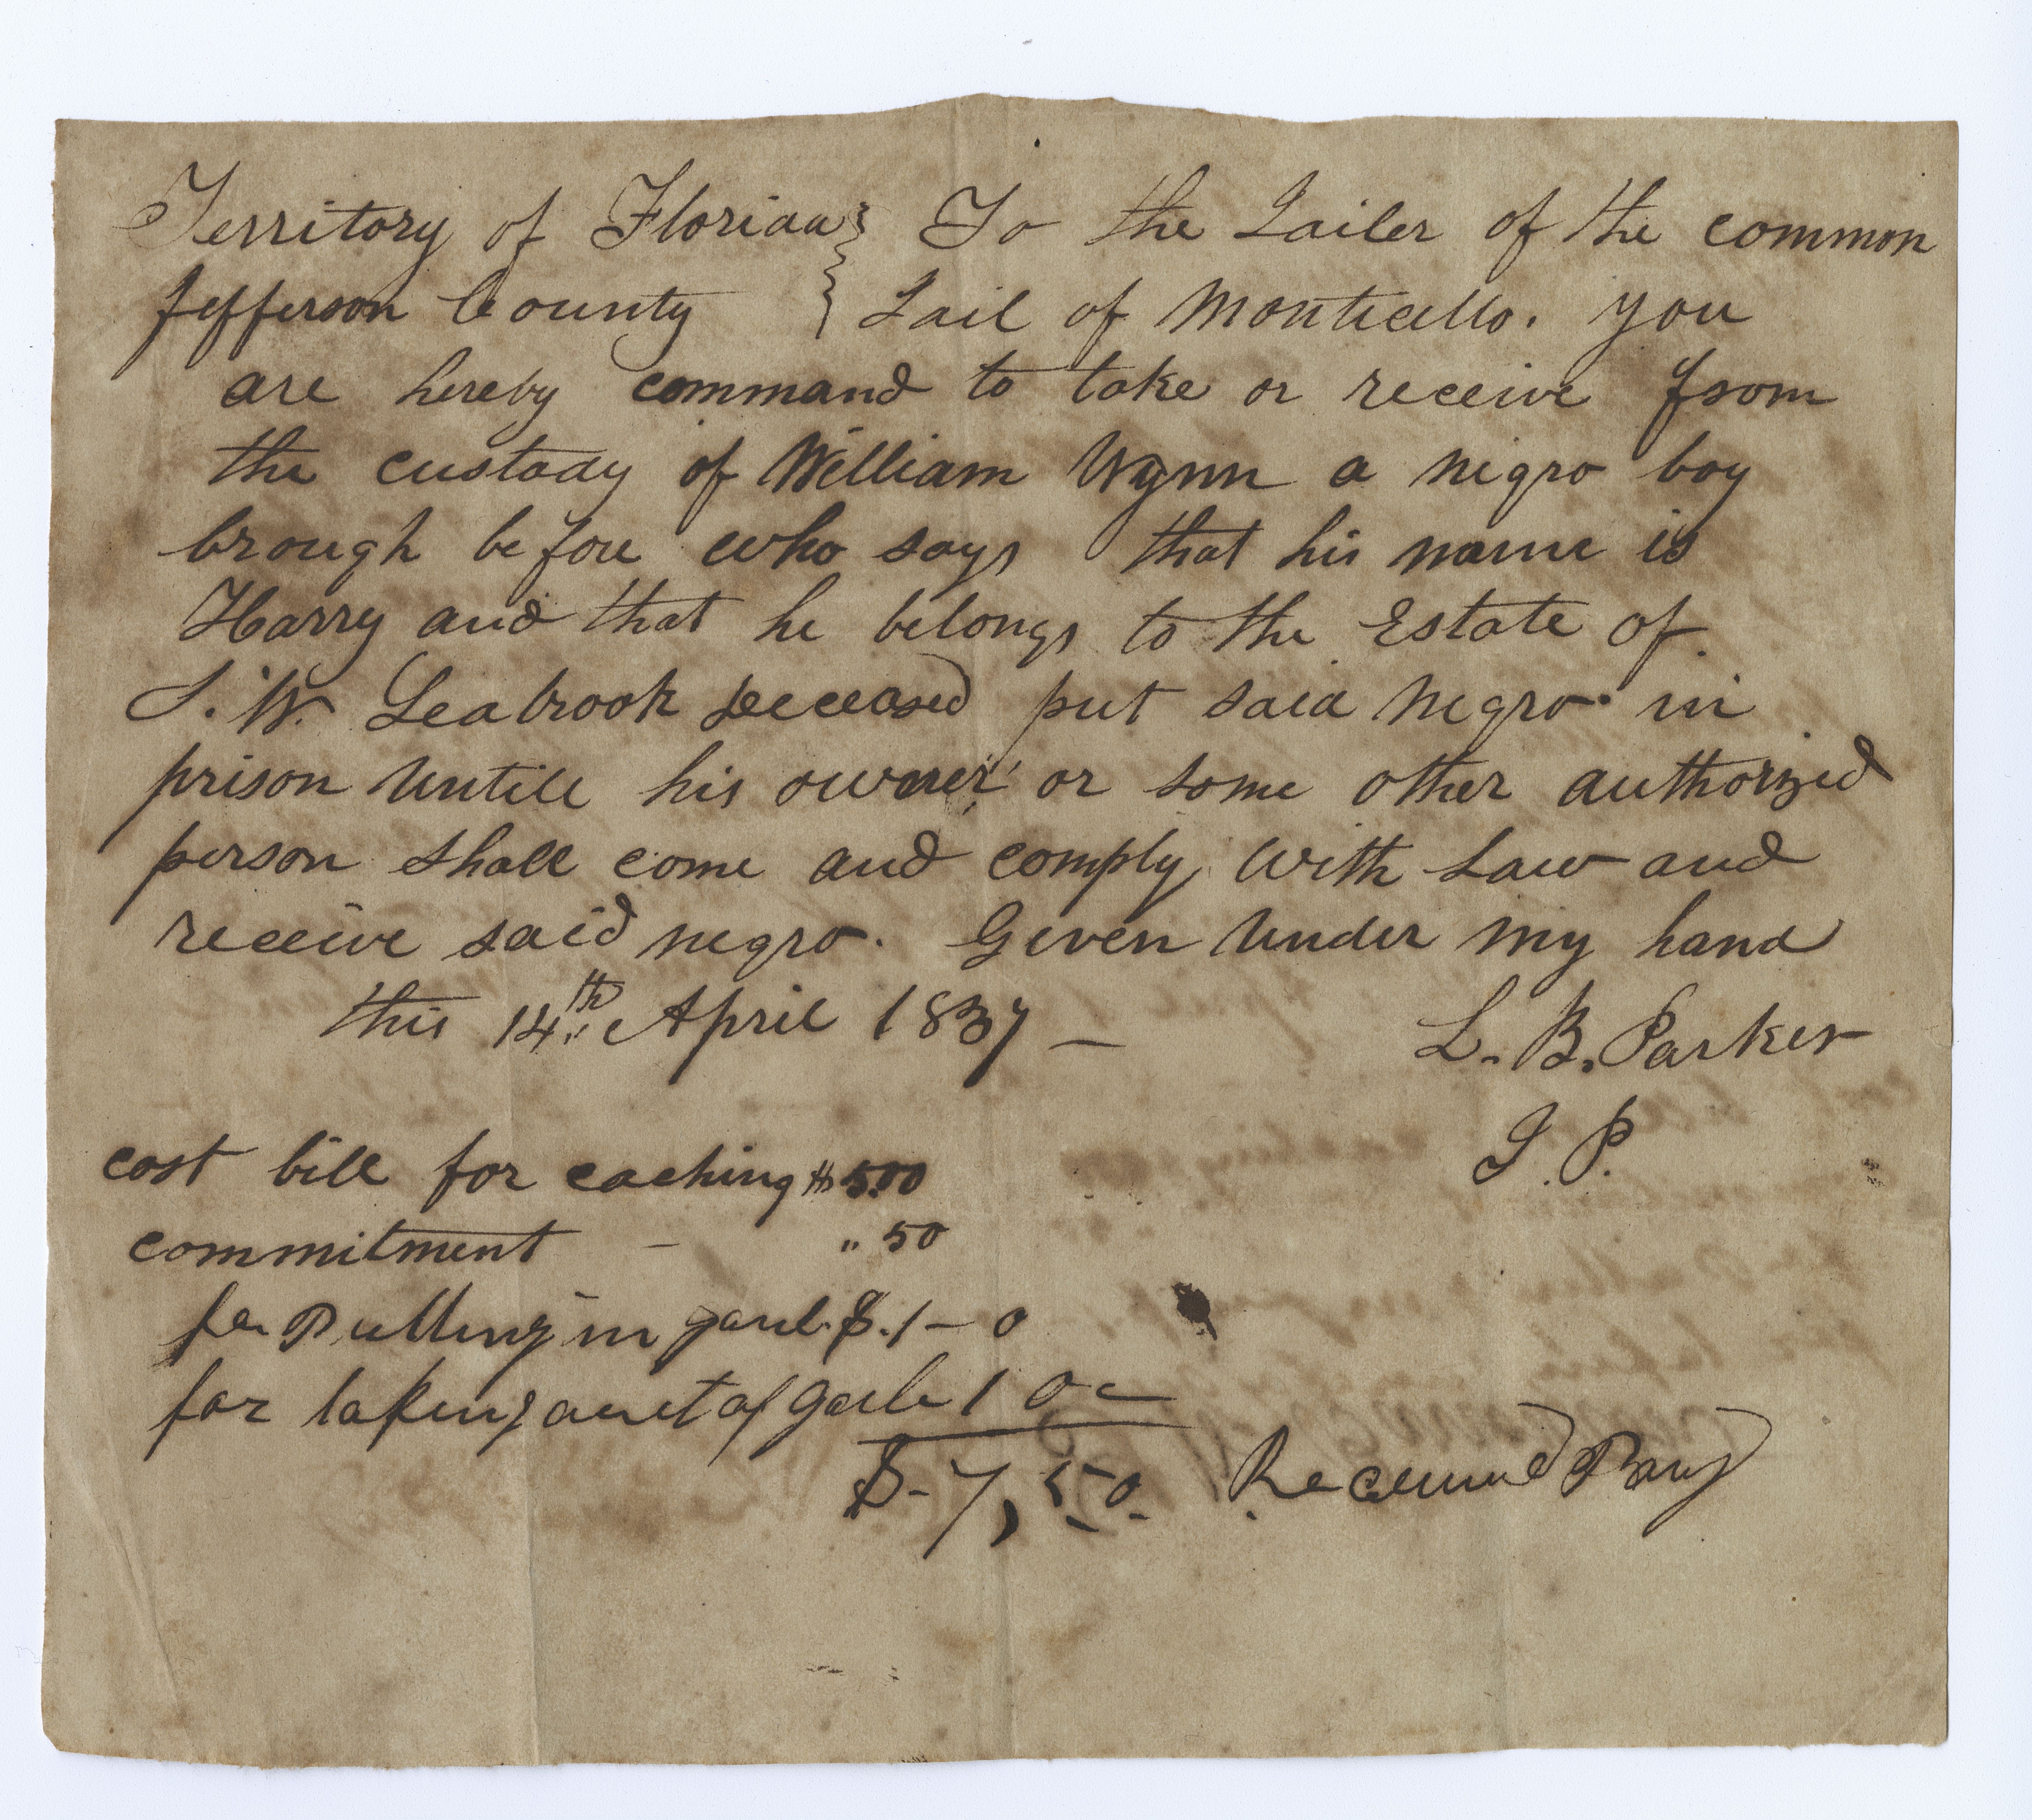 Territory of Florida } To the Jailer of the common
Jefferson County } Jail of Monticello. you
are hereby command to take or receive from
the custody of William Wynn a negro boy
brough before who says that his name is
Harry and that he belongs to the Estate of
J. W. Seabrook deceased put said negro in
prison untill his owner or some other authorized
person shall come and comply with Law and
receive said negro. Given under my hand
this 14th April 1837 —
L. B. Parker
J. P.
cost bill for caching $ 5.00
commitment — " 50
for Putting in gaul $.1–0
for taking out of Gale 1 0 –
$-7,50. Received Pay